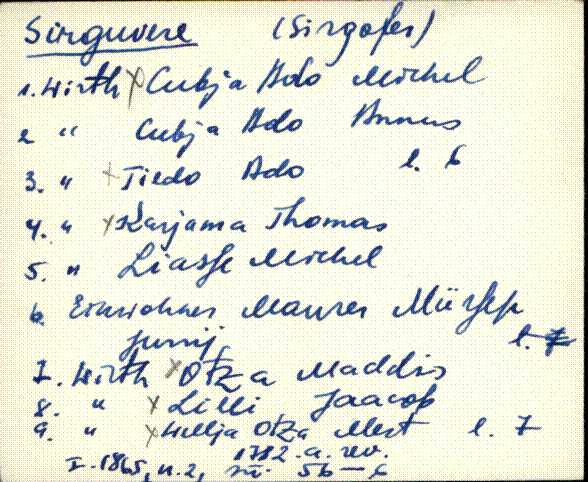 Sirguvere (Sirgofer)
1. Wirth x Cubja Ado Michel
2 " Cubja Ado Annus
3. " + Tiedo Ado l. 6
4. " x Karjama Thomas
5. " Liasse Michel
6. Einwohner Maurer Mürsepp
Jurrij. l. 7
7. Wirth x Otza Maddis
8. " x Lilli Jaacop
9. " x Wellja Otza Mert l. 7
1782. a. rev.
I.-1865, n. 2, 5b-6